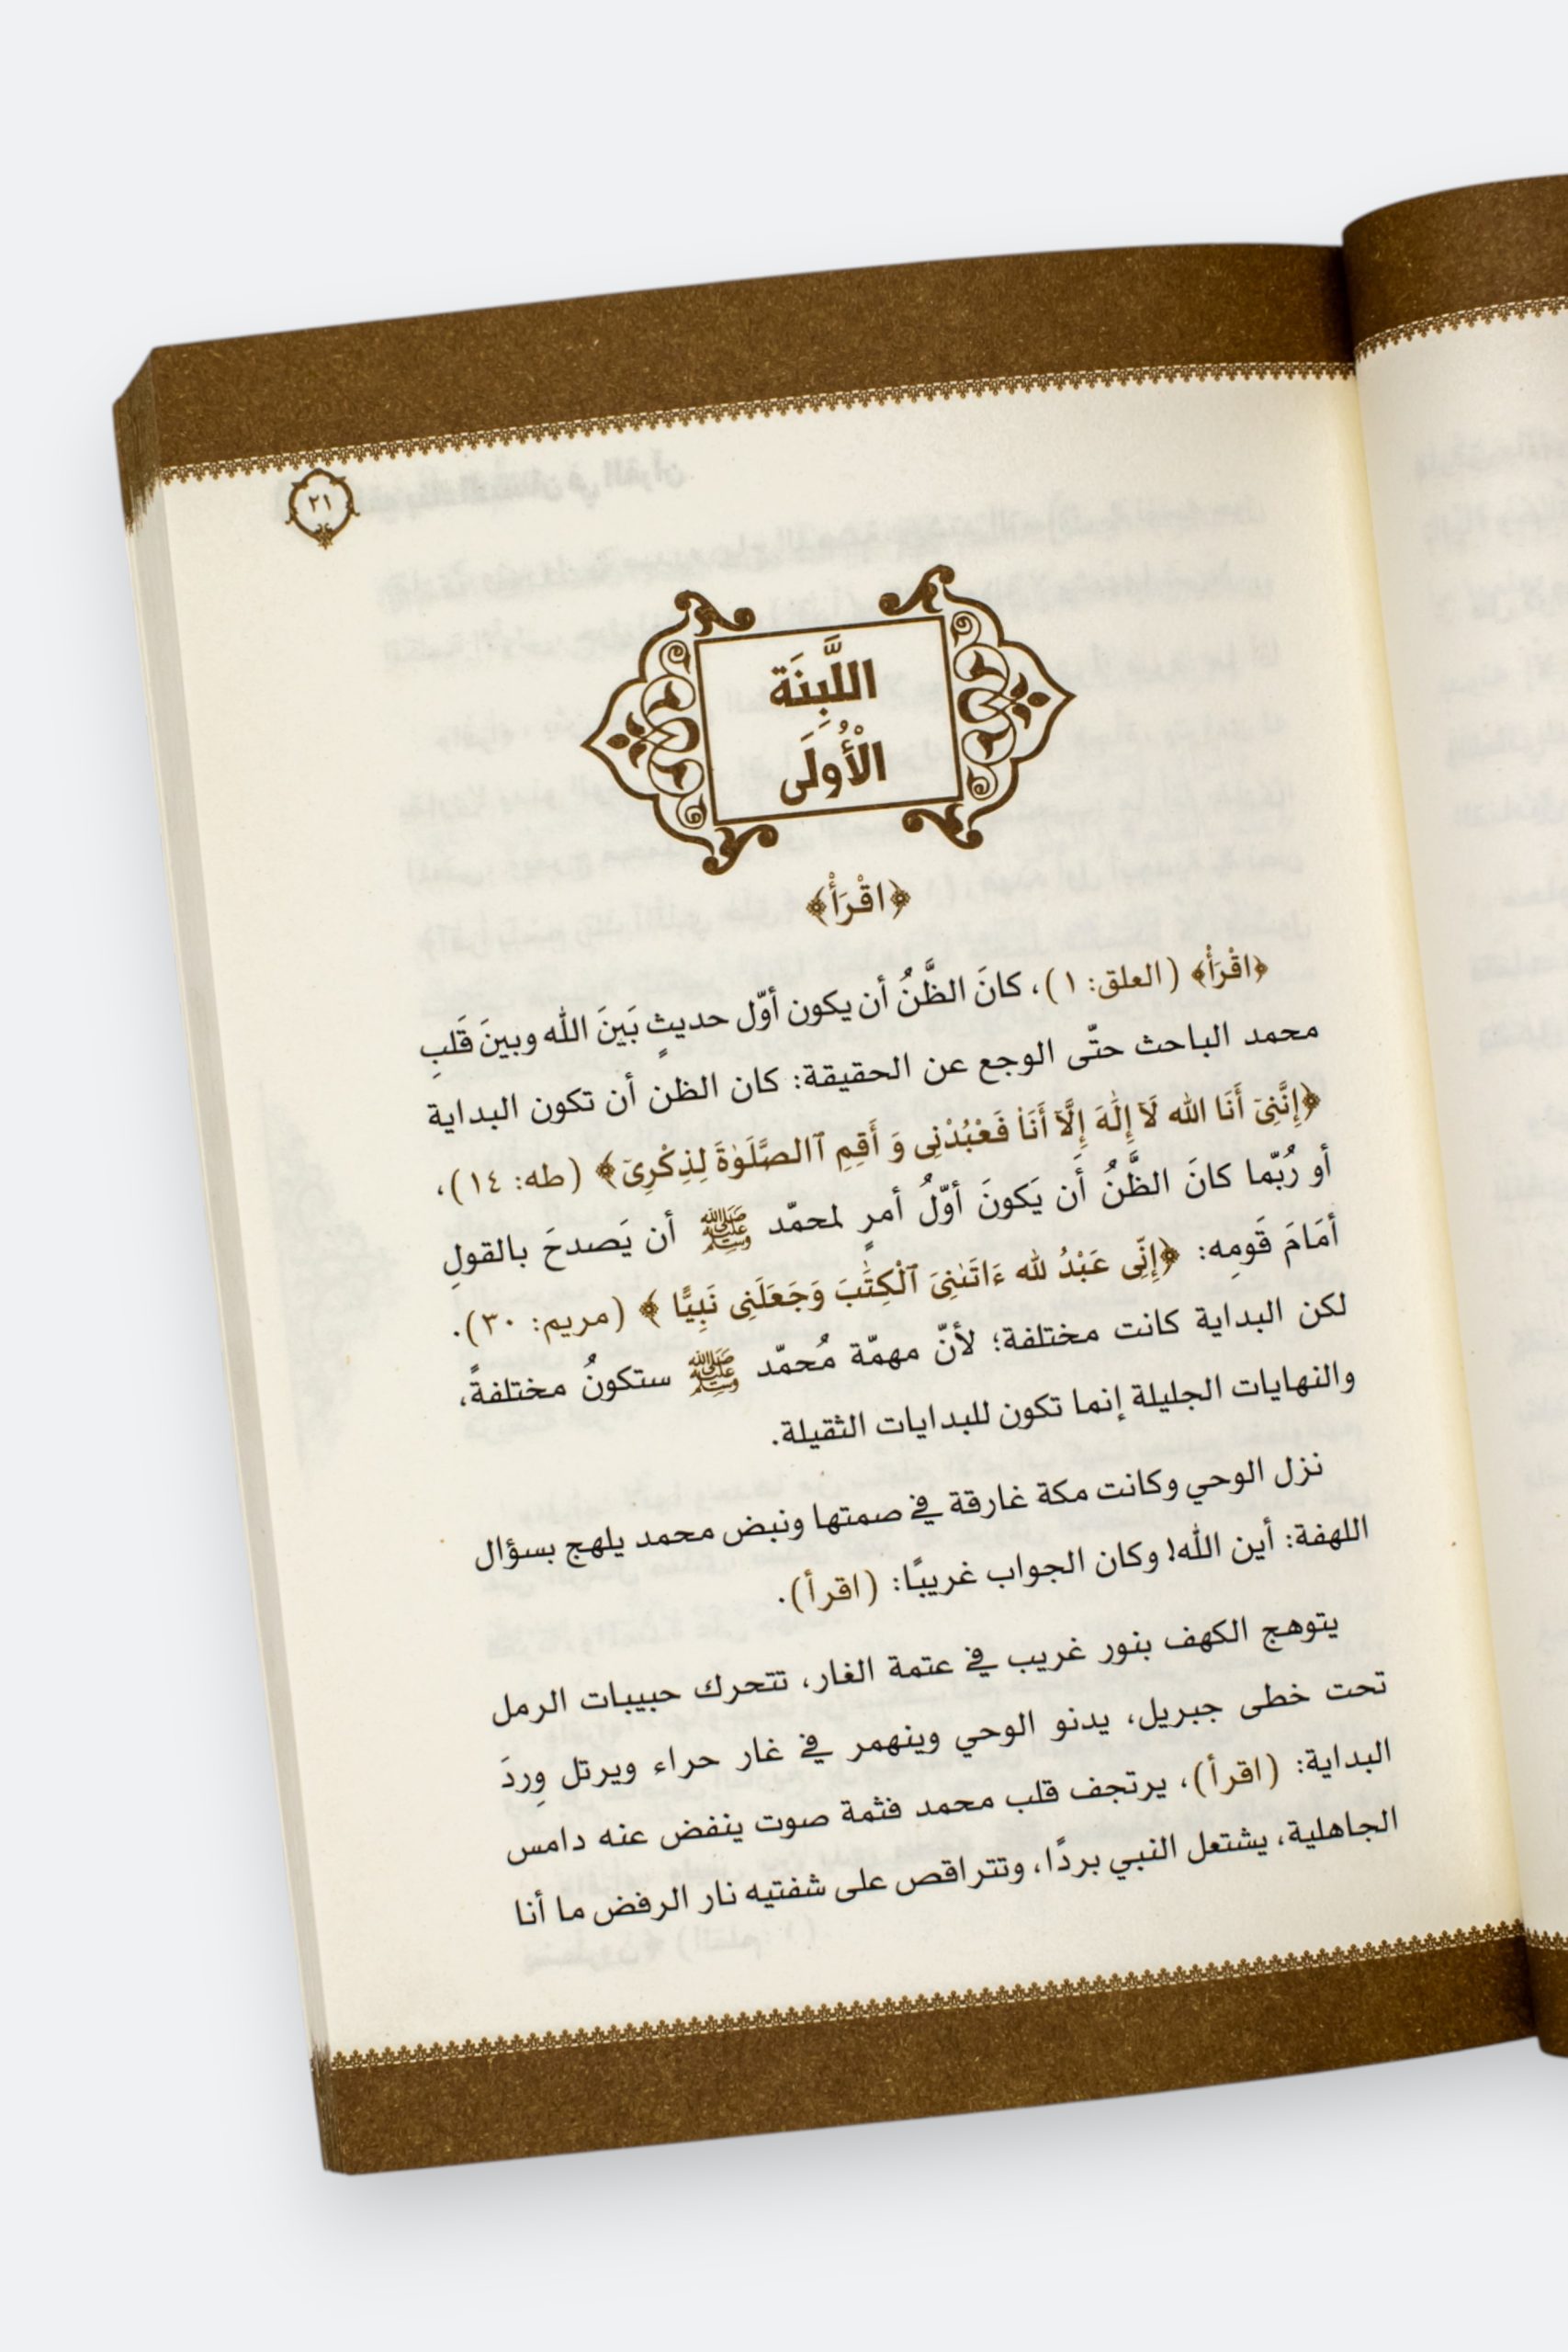 ٢١
اللَّبِنَة
الْأُولَى
﴿اقْرَأْ﴾
﴿اقْرَأْ﴾ (العلق: ١)، كانَ الظَّنُ أن يكون أوّل حديثٍ بَينَ الله وبينَ قَلبِ
محمد الباحث حتّى الوجع عن الحقيقة: كان الظن أن تكون البداية
﴿إِنَّنِىٓ أَنَا الله لَآ إِلَٰهَ إِلَّآ أَنَا۠ فَٱعْبُدْنِى وَ أَقِمِ ٱالصَّلَوٰةَ لِذِكْرِىٓ﴾ (طه: ١٤)،
أو رُبّما كانَ الظَّنُ أن يَكونَ أوّلُ أمرٍ لمحمّد ﷺ أن يَصدحَ بالقولِ
أمَامَ قَومِه: ﴿إِنِّى عَبْدُ لله ءَاتَىٰنِىَ ٱلْكِتَٰبَ وَجَعَلَنِى نَبِيًّا ﴾ (مريم: ٣٠).
لكن البداية كانت مختلفة؛ لأنّ مهمّة مُحمّد ﷺ ستكونُ مختلفةً،
والنهايات الجليلة إنما تكون للبدايات الثقيلة.
نزل الوحي وكانت مكة غارقة في صمتها ونبض محمد يلهج بسؤال
اللهفة: أين الله! وكان الجواب غريبًا: (اقرأ).
يتوهج الكهف بنور غريب في عتمة الغار، تتحرك حبيبات الرمل
تحت خطى جبريل، يدنو الوحي وينهمر في غار حراء ويرتل وِردَ
البداية: (اقرأ)، يرتجف قلب محمد فثمة صوت ينفض عنه دامس
الجاهلية، يشتعل النبي بردًا، وتتراقص على شفتيه نار الرفض ما أنا